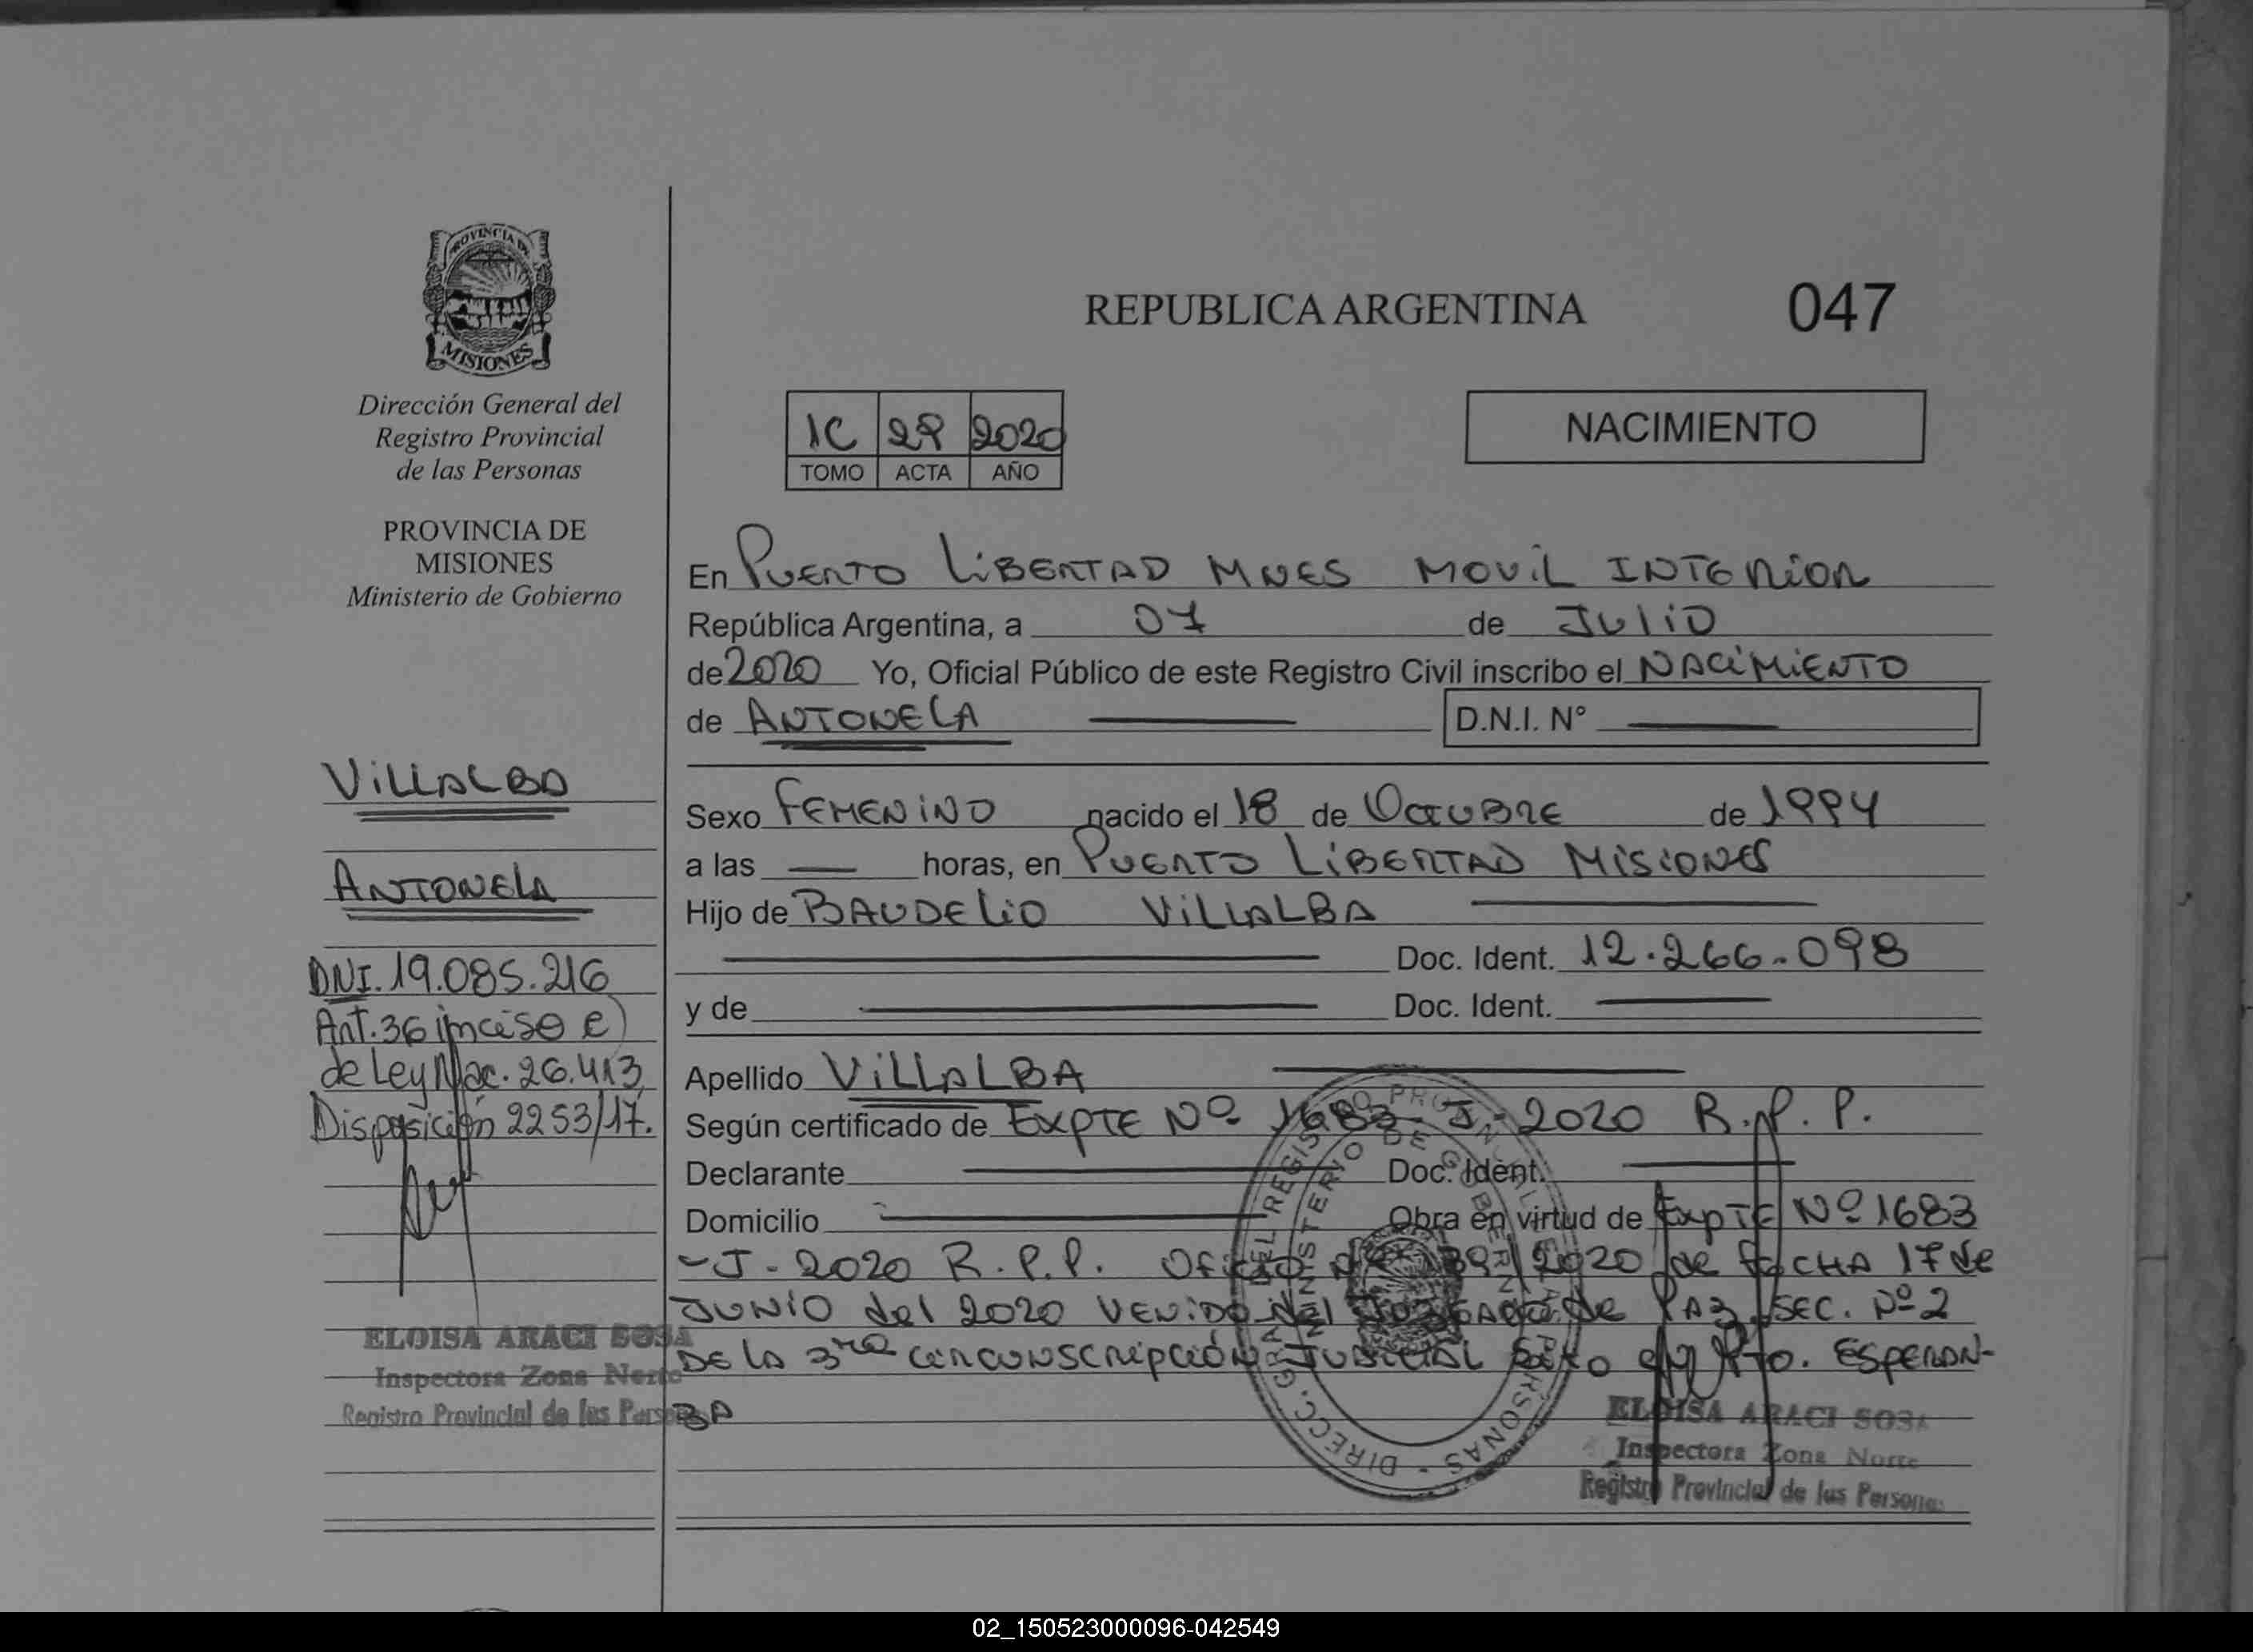 PROVINCIA DE
MISIONES
Dirección General del
Registro Provincial
de las Personas
PROVINCIA DE
MISIONES
Ministerio de Gobierno
VILLALBA
ANTONELA
DNI. 19.085.216
Art. 36 inciso e)
de Ley Nac. 26.413
Disposición 2253/17.
ELOISA ARACI SOSA
Inspectora Zona Norte
Registro Provincial de las Personas
REPUBLICA ARGENTINA 047
1C 29 2020
TOMO ACTA AÑO
NACIMIENTO
En PUERTO LIBERTAD MNES MOVIL INTERIOR
República Argentina, a 07 de JULIO
de 2020 Yo, Oficial Público de este Registro Civil inscribo el NACIMIENTO
de ANTONELA D.N.I. N°
Sexo FEMENINO nacido el 18 de OCTUBRE de 1994
a las horas, en PUERTO LIBERTAD MISIONES
Hijo de BAUDELIO VILLALBA
Doc. Ident. 12.266.098
y de Doc. Ident.
Apellido VILLALBA
Según certificado de EXPTE Nº 1683-J-2020 R.P.P.
Declarante Doc. Ident.
Domicilio Obra en virtud de EXPTE Nº 1683
-J-2020 R.P.P. Oficio 2020 de FECHA 17 de
JUNIO del 2020 VENIDO del JUZGADO de PAZ SEC. Nº 2
DE LA 3ra CIRCUNSCRIPCIÓN JUDICIAL SITO EN Pto. ESPERAN-
ZA
DIRECC. GRAL. DEL REGISTRO PROVINCIAL DE LAS PERSONAS
MINISTERIO DE GOBIERNO
ELOISA ARACI SOSA
Inspectora Zona Norte
Registro Provincial de las Personas
02_150523000096-042549